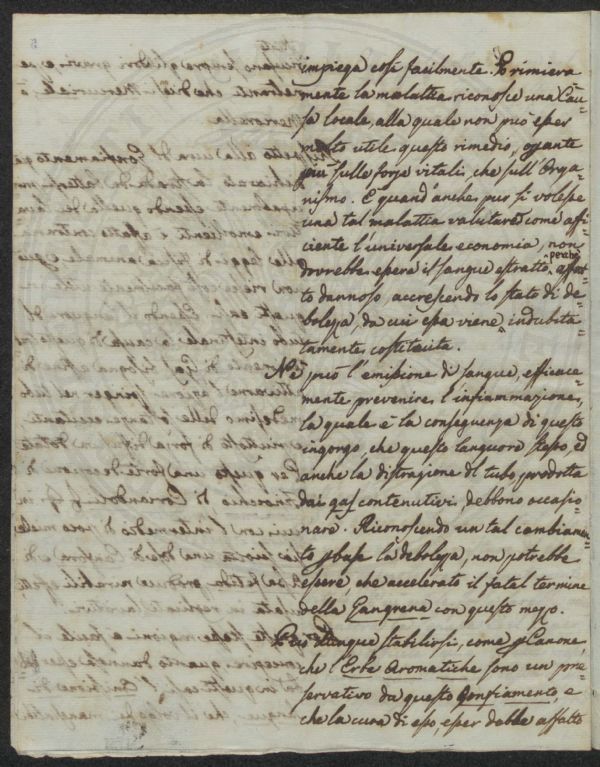 impiega così facilmente. Primiera
mente la malattia riconosce una Cau
sa locale, alla quale non può esser
molto utile questo rimedio, agente
più sulle forze vitali, che sull'Orga
nismo. E quand'anche pur si volesse
una tal malattia valutare come affi
ciente l'universale economia, non
dovrebbe essere il sangue estratto, perchè affat
to dannoso, accrescendo lo stato di de
bolezza, da cui essa viene indubita
tamente costituita.
Nè può l'emissione di sangue, efficace
mente prevenire l'infiammazione,
la quale è la conseguenza di questo
ingorgo, che questo languore stesso, ed
anche la distrazione del tubo, prodotta
dai gas contenutivi debbono occasio
nare. Riconoscendo un tal cambiamen
to p base la debolezza, non potrebbe
essere, che accelerato il fatal termine
della Gangrena con questo mezzo.
Può dunque stabilirsi, come p Canone,
che l'Erbe Aromatiche sono un pre
servativo da questo Gonfiamento, e
che la cura di esso, esser debbe affatto